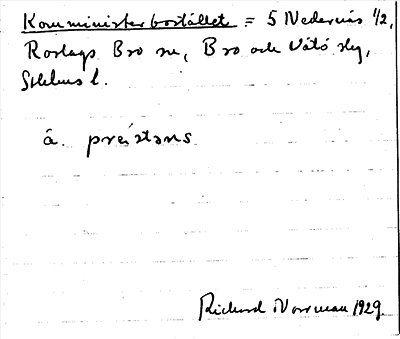 Komministerbostället = 5 Nedernäs 1/2,
Roslags Bro sn, Bro och Vätö slg,
Sthlms l.
â. pre̍stəns
Richard Norrman 1929.